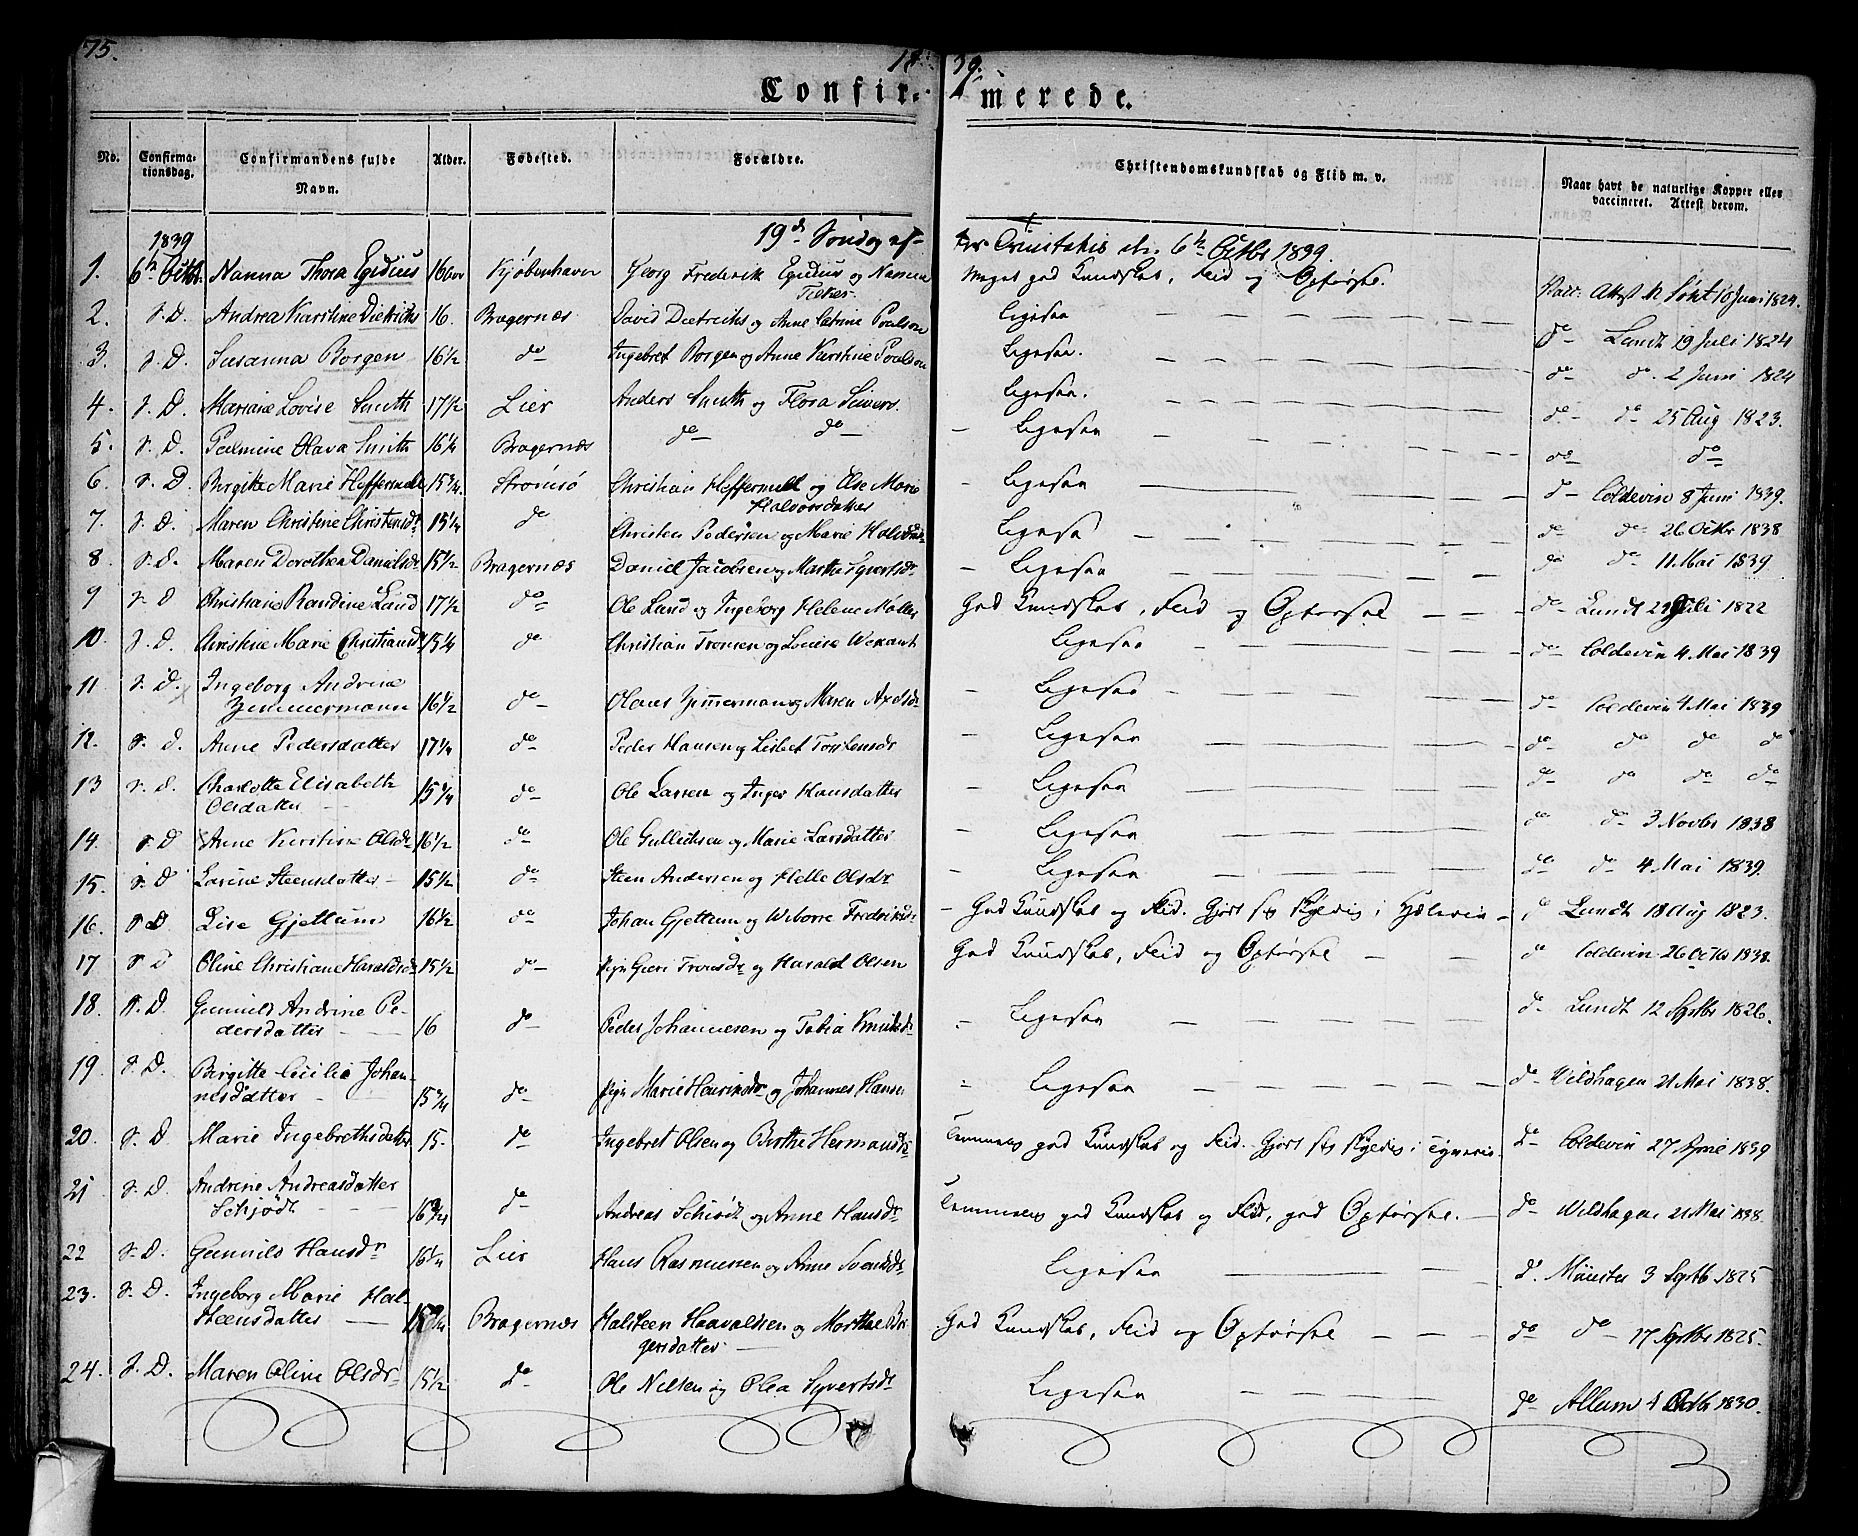 75.
18 39.
Confir- merede.
No. Confirma-tionsdag. Confirmandens fulde Navn. Alder. Fødested. Forældre. Christendomskundskab og Flid m. v. Naar havt de naturlige Kopper eller vaccineret. Attest derom.
1839 19d Søndag eft Trinitatis den 6te Octbr 1839.
1. 6te Octbr. Nanna Thora Egidius 16 Kjøbenhavn Georg Frederik Egidius og Nanna Meget god Kundskab, Flid og Opførsel. Vacc: Attest 10 Juni 1824.
2. s. D. Andrea Karstine Dietrichs 16. Bragernæs David Dietrichs og Anne Catrine Poulsen Ligesaa do Lundt 19 Juli 1824
3. s. D. Susanna Borgen 16 1/2 do Ingebret Borgen og Anne Kirstine Poulsen Ligesaa. do do 2 Juni 1824
4. s. D. Mariane Lovise Smith 17 1/2 Lier Anders Smith og Flora Sivers. Ligesaa. do do 25 Aug 1823.
5. s. D. Palmine Olava Smith 16 1/4 Bragernæs do do Ligesaa do do
6. s. D. Birgitte Marie Heffermehl 15 3/4. Strømsø Christian Heffermehl og Else Marie Halvorsdatter Ligesaa do Coldevin 8 Juni 1839.
7. s. D. Maren Christine Christensdr 15 1/4 do Christen Pedersen og Marie Halvorsdr Ligesaa do do 26 Octbr 1838
8. s. D. Maren Dorothea Danielsdr 15 1/2 Bragernæs Daniel Jacobsen og Marthe Syvertsdr Ligesaa do do 11 Mai 1839
9 s. D Christiane Randine Lund 17 1/2 do Ole Lund og Ingeborg Helene Møller God Kundskab, Flid og Opførsel do Lundt 29 Juli 1822
10. s. D. Christine Marie Christiansdr 15 1/4 do Christian Tronsen og Lovise Ligesaa do Coldevin 4 Mai 1839
11 s. D. Ingeborg Andrine Zimmermann 16 1/2 do Olaves Zimmerman og Maren Axelsdr Ligesaa do Coldevin 4 Mai 1839
12. s. D. Anne Pedersdatter 17 1/4 do Peder Hansen og Lisbet Torstensdr Ligesaa do do do do
13 s. D. Charlotte Elisabeth Olsdatter 15 1/4 do Ole Larsen og Inger Hansdatter Ligesaa do do do do
14. s. D Anne Kirstine Olsdr 16 1/2 do Ole Gulliksen og Marie Larsdatter Ligesaa do do 3 Novbr 1838
15. s. D Larine Steensdatter 15 1/2 do Steen Andersen og Helle Olsdr Ligesaa do do 4 Mai 1839.
16. s. D. Lise Gjettum 16 1/2 do Johan Gjettum og Weborre Fredriksdr God Kundskab og Flid. Gjort sig skyldig i do Lundt 18 Aug 1823.
17 s. D Oline Christiane Haraldsdr 15 1/2 do Pign Guri Tronsdr og Harald Olsen God Kundskab, Flid og Opførsel do Coldevin 26 Octbr 1838.
18. s. D. Gunnild Andrine Pedersdatter 16 do Peder Johannesen og Tobia Knudsdr Ligesaa do Lundt 12 Septbr 1826.
19. s. D. Birgitte Cecilie Johannesdatter 15 3/4 do Pign Marie Henriksdr og Johannes Hansen Ligesaa do Wildhagen 21 Mai 1838.
20. s. D. Marie Ingebrethsdatter 15. do Ingebret Olsen og Birthe Hermansdr Temmelig god Kundskab og Flid. Gjort sig skyldig i Tyverie. do Coldevin 27 April 1839
21 s. D. Andrine Andreasdatter Schjødt 16 3/4 do Andreas Schiødt og Anne Hansdr Temmelig god Kundskab og Flid, god Opførsel. do Wildhagen 21 Mai 1838.
22 s. D. Gunnild Hansdr 16 1/4 Lier Hans Rasmussen og Anne Svendsdr Ligesaa do Münster 3 Septb 1825
23. s. D. Ingeborg Marie Halsteensdatter 15 3/4 Bragernæs Halsteen Haavaldsen og Marthe Birgersdatter God Kundskab, Flid og Opførsel do do 17 Septbr 1825.
24. s. D. Maren Oline Olsdr 15 1/2 do Ole Nilsen og Olea Syvertsdr Ligesaa do Allum 4 Octbr 1830.